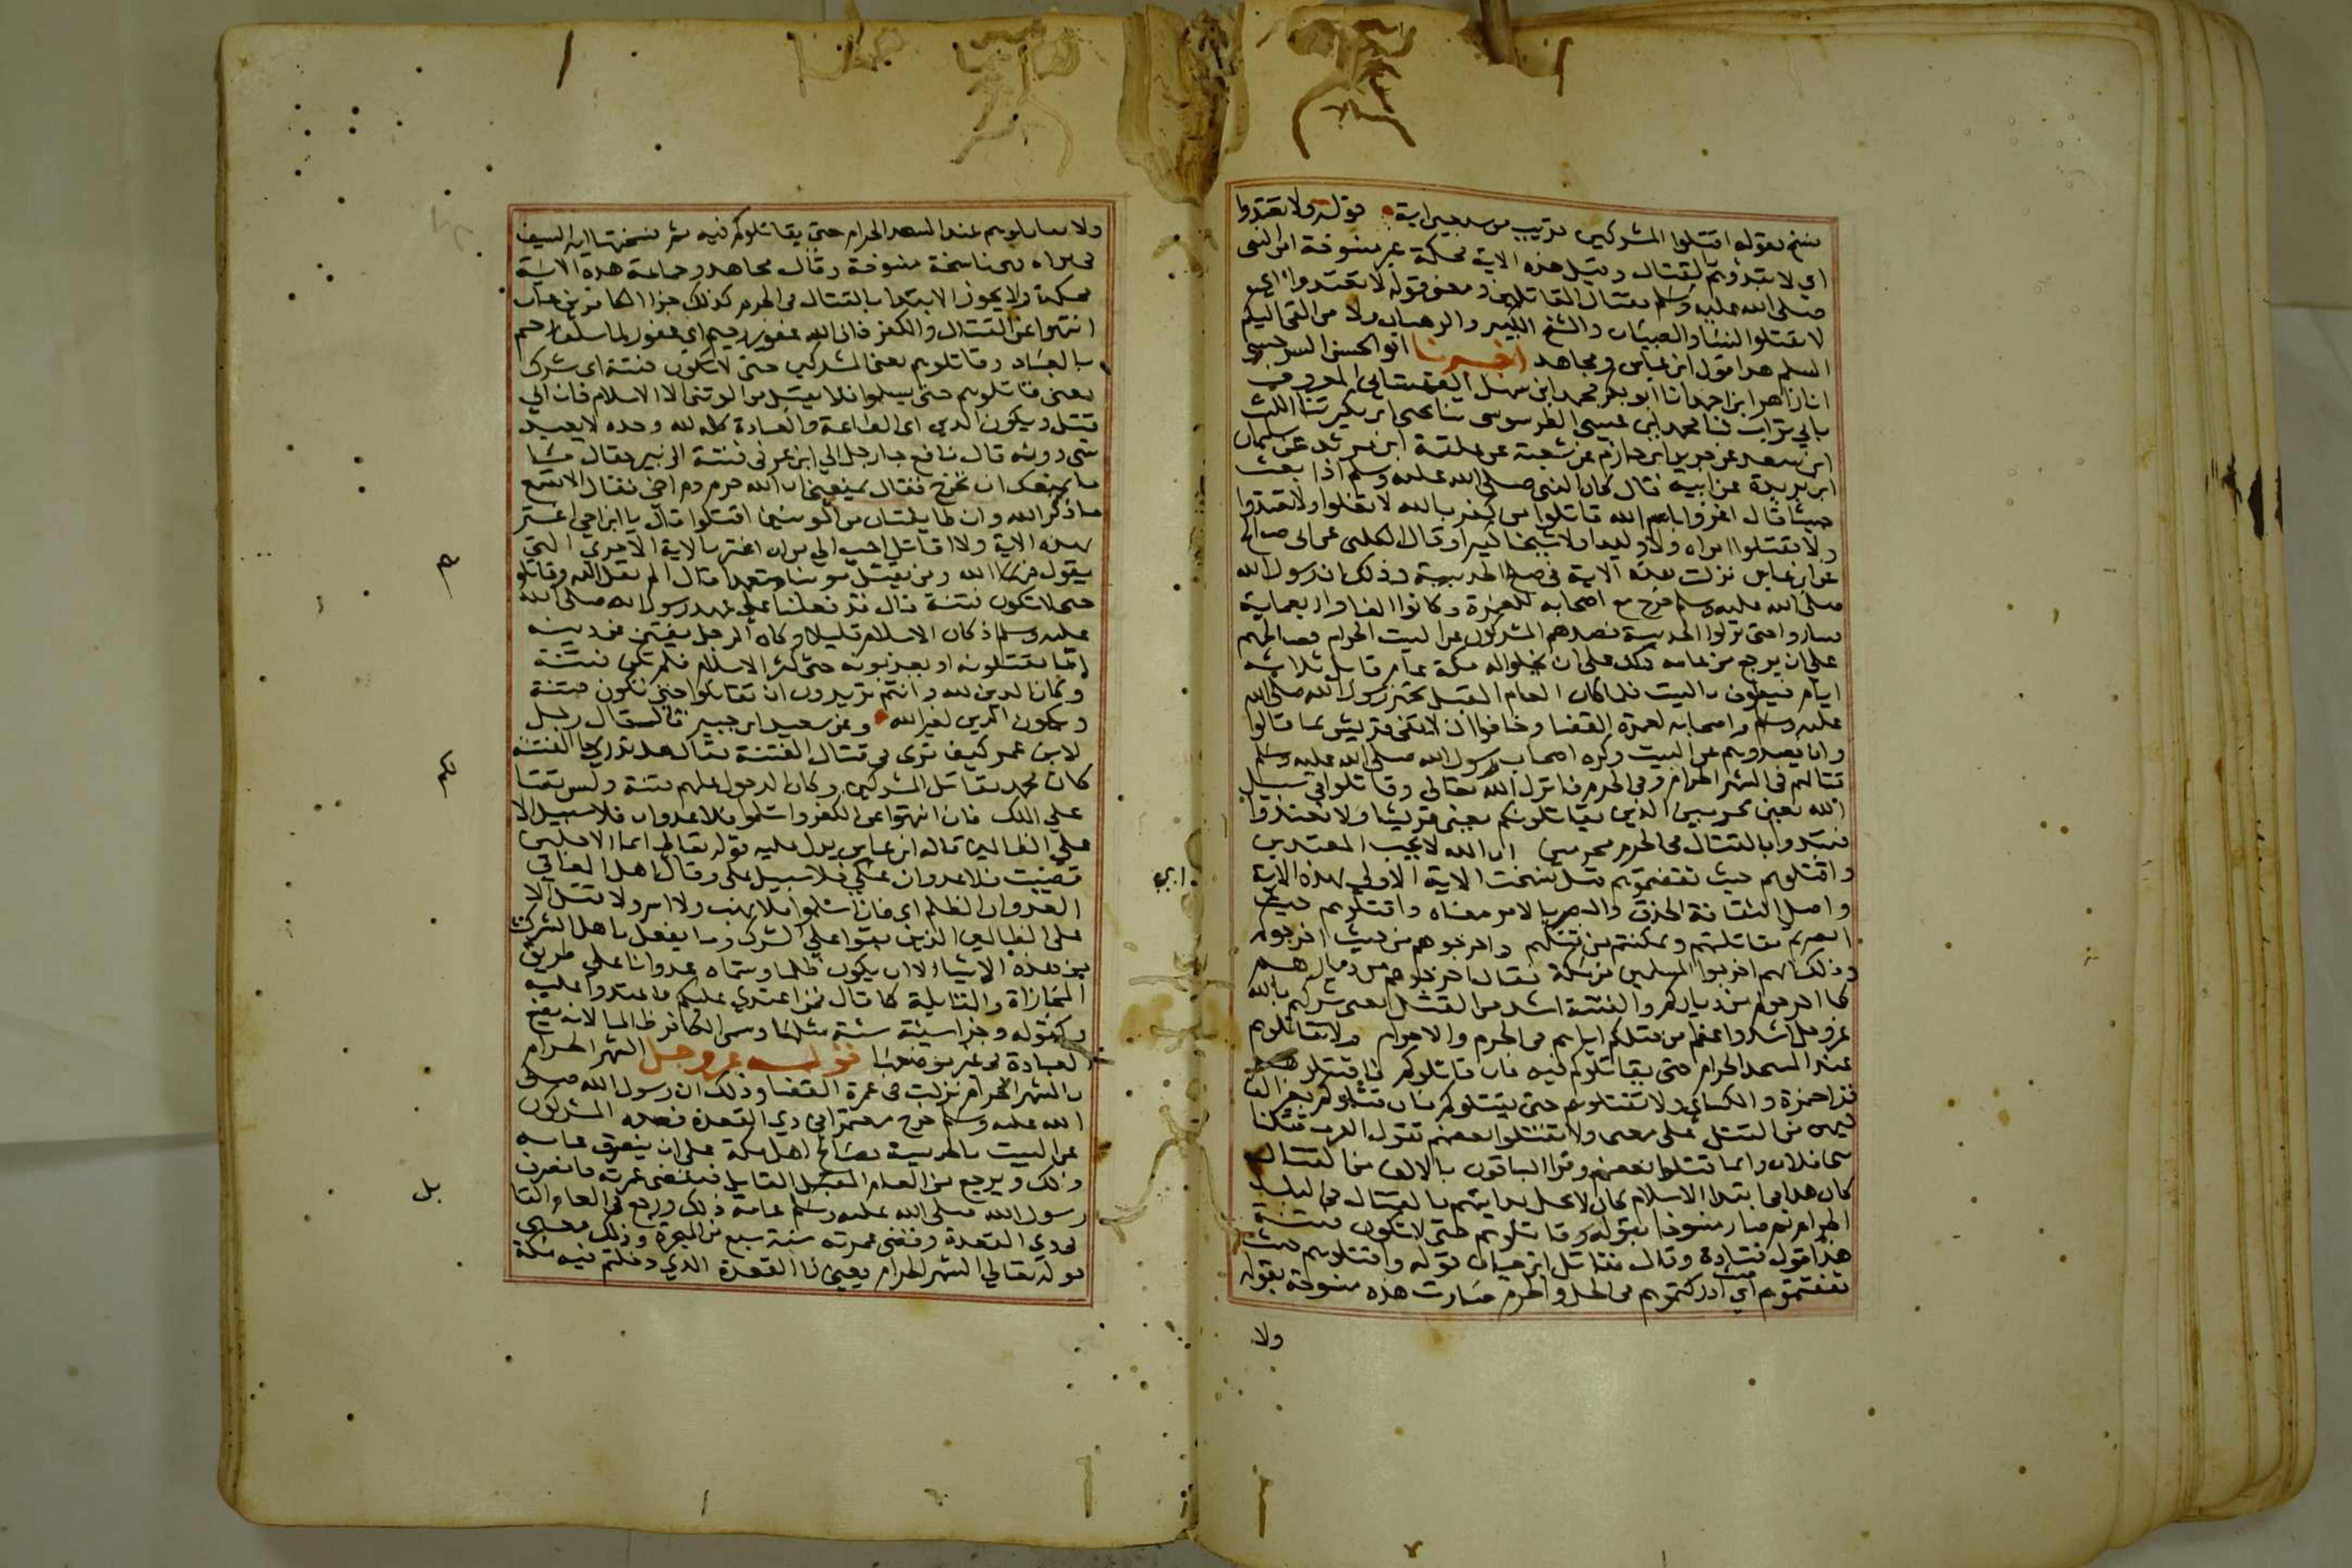 نسخ بقوله اقتلوا المشركين قريب من سبعين اية قوله ولا تعتدوا
اي لا تبدؤهم لقتال وقيل هذه الاية محكمة غير منسوخة امر النبي
صلى الله عليه وسلم بقتال المقاتلين ومعنى قوله لا تعتدوا اي
لا تقتلوا النسا والصبيان والشيخ الكبير والرهبان ولا من القى اليكم
السلم هدا قول ابن عباس ومجاهد اخبرنا ابو الحسن السرخسي
انا زاهر ابن احمد انا ابو بكر محمد ابن سهل القهستاني المعروف
بابي تراب ثنا محمد ابن عيسى الطرسوسي ثنا يحيى ابن بكير ثنا الليث
ابن سعد عن جرير ابن حازم عن شعبة عن علقمة ابن مرثد عن سليمان
ابن بريدة عن ابيه قال كان النبي صلى الله عليه وسلم اذا بعث
جيشا قال اغزوا باسم الله قاتلوا من كفر بالله لا تغلوا ولا تغدروا
ولا تقتلوا امراة ولا وليدا ولا شيخا كبيرا وقال الكلبي عن ابي صالح
عن ابن عباس نزلت هذه الاية في صلح الحديبية وذلك ان رسول الله
صلى الله عليه وسلم خرج مع اصحابه للعمرة وكانوا الفا واربعماية
فساروا حتى نزلوا الحديبية فصدهم المشركون عن البيت الحرام فصالحهم
على ان يرجع من عامه ذلك على ان يخلوا له مكة عام قابل ثلاثة
ايام فيطوف بالبيت فلما كان العام المقبل تجهز رسول الله صلى الله
عليه وسلم واصحابه لعمرة القضا وخافوا ان لا تفي قريش بما قالوا
وان يصدوهم عن البيت وكره اصحاب رسول الله صلى الله عليه وسلم
قتالهم في الشهر الحرام وفي الحرم فانزل الله تعالى وقاتلوا في سبيل
الله يعني محرمين الذين يقاتلونكم يعني قريشا ولا تعتدوا
فتبدوا بالقتال في الحرم محرمين ان الله لا يحب المعتدين
واقتلوهم حيث ثقفتموهم قيل نسخت الاية الاولى بهذه الاية
واصل الثقافة الحذق والبصر بالامر معناه واقتلوهم حيث
ابصرتم مقاتلتهم وتمكنتم من قتلهم واخرجوهم من حيث اخرجوكم
وذلك انهم اخرجوا المسلمين من مكة فقال اخرجوهم من ديارهم
كما اخرجوكم من دياركم والفتنة اشد من القتل يعني شركهم بالله
عز وجل اشد واعظم من قتلكم اياهم في الحرم والاحرام ولا تقاتلوهم
عند المسجد الحرام حتى يقاتلوكم فيه فان قاتلوكم فاقتلوهم
قرا حمزة والكسائي ولا تقتلوهم حتى يقتلوكم فان قتلوكم بغير الف
فيهن من القتل على معنى ولا تقتلوا بعضهم تقول العرب قتلنا
بني فلان وانما قتلوا بعضهم وقرا الباقون بالالف من القتال
كان هدا في ابتدا الاسلام كان لا يحل بدايتهم بالقتال في البلد
الحرام ثم صار منسوخا بقوله وقاتلوهم حتى لا تكون فتنة
هذا قول قتادة وقال مقاتل ابن حيان قوله واقتلوهم حيث
ثقفتموهم اي حيث ادركتموهم في الحل والحرم صارت هذه منسوخة بقوله
ولا
ولا تقاتلوهم عند المسجد الحرام حتى يقاتلوكم فيه ثم نسختها اية السيف
في براة فهي ناسخة منسوخة وقال مجاهد وجماعة هذه الاية
محكمة ولا يجوز الابتدا بالقتال في الحرم كذلك جزا الكافرين فان
انتهوا عن القتال والكفر فان الله غفور رحيم اي غفور لما سلف رحيم
بالعباد وقاتلوهم يعني المشركين حتى لا تكون فتنة اي شرك
يعني قاتلوهم حتى يسلموا فلا يقبل من الوثني الا الاسلام فان ابي
قتل ويكون الدين اي الطاعة والعبادة كله لله وحده لا يعبد
شي دونه قال نافع جا رجل الي ابن عمر في فتنة ابن الزبير فقال
ما يمنعك ان تخرج فقال يمنعني ان الله حرم دم اخي فقال الا تسمع
ما ذكر الله وان طايفتان من المومنين اقتتلوا قال يا ابن اخي اعتبر
بهذه الاية ولا اقاتل احب الي من ان اعتبر بالاية الاخرى التي
يقول فيها الله ومن يقتل مومنا متعمدا قال الم يقل الله وقاتلوهم
حتى لا تكون فتنة قال قد فعلنا على عهد رسول الله صلى الله
عليه وسلم اذ كان الاسلام قليلا وكان الرجل يفتن في دينه
اما يقتلونه او يعذبونه حتى كثر الاسلام فلم تكن فتنة
وكان الدين لله وانتم تريدون ان تقاتلوا حتى تكون فتنة
ويكون الدين لغير الله وعن سعيد ابن جبير قال قال رجل
لابن عمر كيف ترى في قتال الفتنة فقال هل تدري ما الفتنة
كان محمد يقاتل المشركين وكان الدخول عليهم فتنة وليس بقتالكم
على الملك فان انتهوا عن الكفر واسلموا فلا عدوان فلا سبيل الا
على الظالمين قاله ابن عباس يدل عليه قوله تعالى ايما الاجلين
قضيت فلا عدوان علي فلا سبيل علي وقال اهل المعاني
العدوان الظلم اي فان اسلموا فلا نهب ولا اسر ولا قتل الا
على الظالمين الذين بقوا على الشرك وما يفعل باهل الشرك
من هذه الاشيا لا ان يكون ظلما وسماه عدوانا على طريق
المجازاة والمقابلة كما قال فمن اعتدى عليكم فاعتدوا عليه
وكقوله وجزا سيئة سيئة مثلها وسمى الكافر ظالما لانه يضع
العبادة في غير موضعها قوله عز وجل الشهر الحرام
بالشهر الحرام نزلت في عمرة القضا وذلك ان رسول الله صلى
الله عليه وسلم خرج معتمرا في ذي القعدة فصده المشركون
عن البيت بالحديبية فصالح اهل مكة على ان ينصرف عامه
ذلك ويرجع من العام المقبل القابل فيقضي عمرته فانصرف
رسول الله صلى الله عليه وسلم عامه ذلك ورجع في العام القابل
في ذي القعدة وقضى عمرته سنة سبع من الهجرة وذلك معنى
قوله تعالى الشهر الحرام يعني ذا القعدة الذي دخلتم فيه مكة